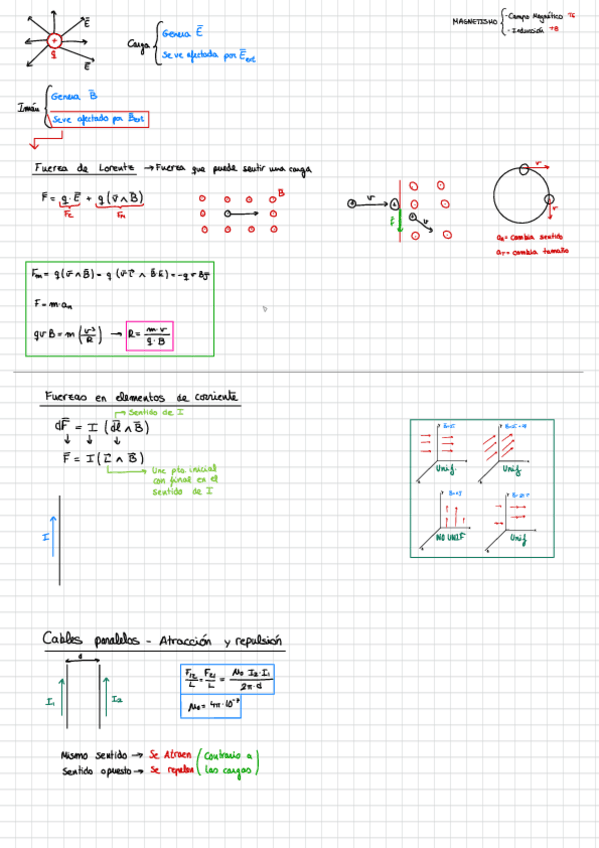 MAGNETISMO - Campo Magnético T6
- Inducción T8
E
q
E
Carga
Genera E
Se ve afectada por E ext
Imán
Genera B
Se ve afectado por B ext
Fuerza de Lorentz → Fuerza que puede sentir una carga
F = q·E + q(v∧B)
Fe Fm
B
v
F
v
v
v
an = cambia sentido
aT = cambia tamaño
Fm = q(v∧B) = q(v·i ∧ B·k) = -qvBj
F = m·an
qvB = m(v²/R) → R = m·v/q·B
Fuerzas en elementos de corriente
Sentido de I
dF = I (dl∧B)
F = I (L∧B)
Une pto. inicial
con final en el
sentido de I
I
Unif.
Unif
NO UNIF
Unif
Cables paralelos - Atracción y repulsión
d
I₁
I₂
F₁₂/L = F₂₁/L = μ₀·I₂·I₁/2π·d
μ₀ = 4π·10⁻⁷
Mismo sentido → Se Atraen (Contrario a
Sentido opuesto → Se repelen las cargas)